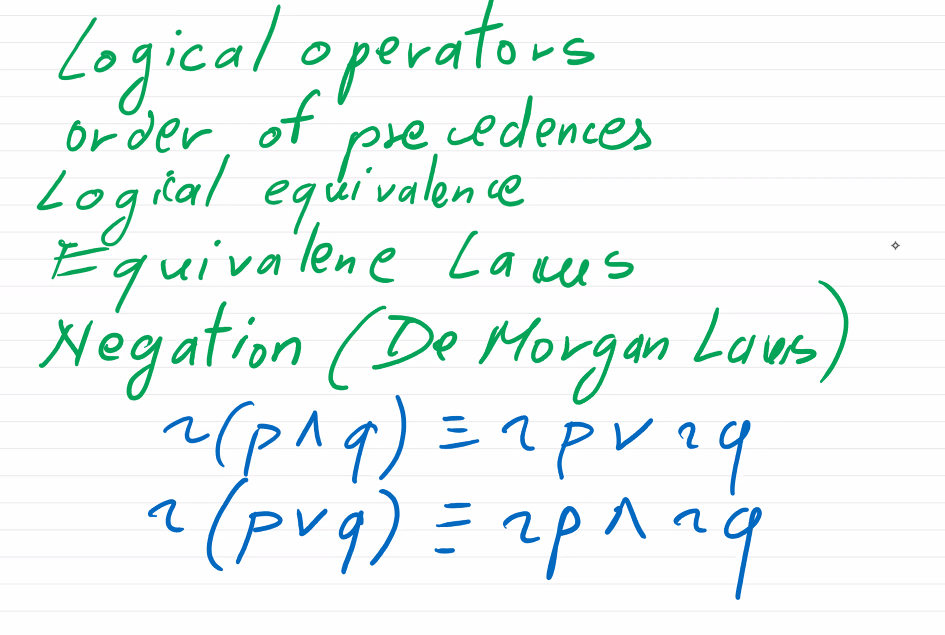 Logical operators
order of precedences
Logical equivalence
Equivalene Laws
Negation (De Morgan Laws)
~(p∧q) ≡ ~p∨~q
~(p∨q) ≡ ~p∧~q